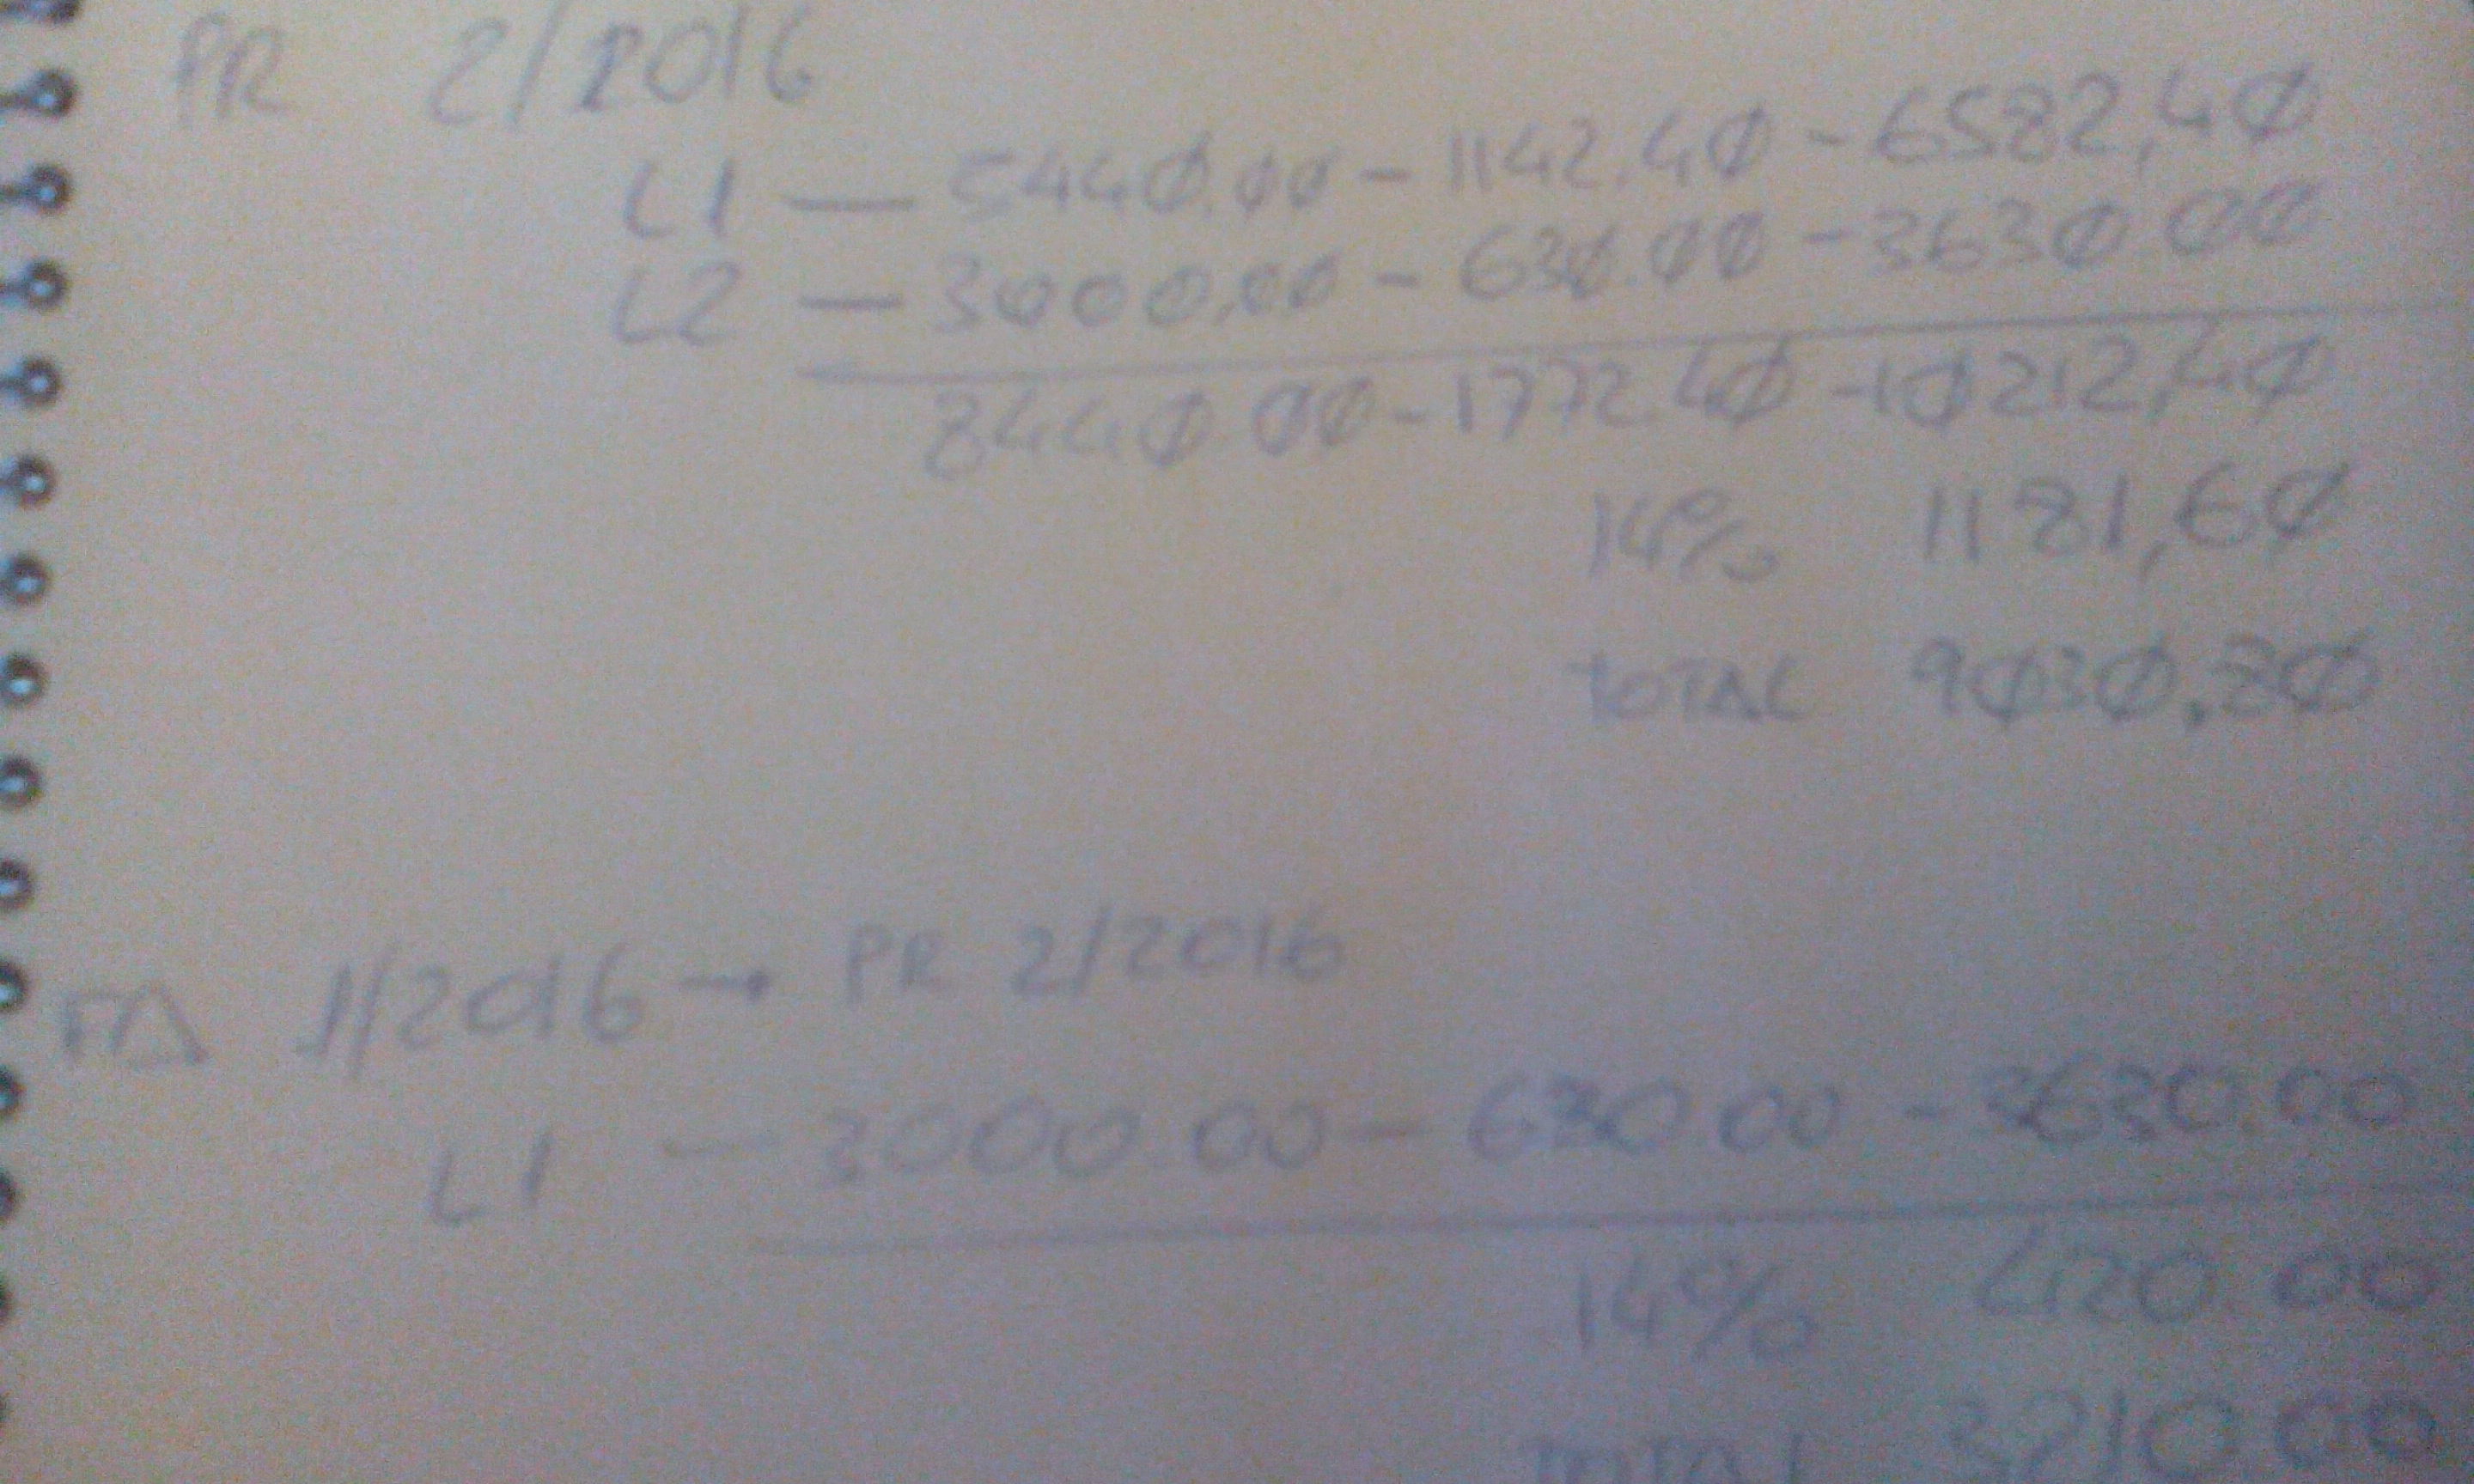 PR 2/2016
L1 — 5440.00 - 1142.40 - 6582,40
L2 — 3000,00 - 630.00 - 3630.00
8440.00 - 1772.40 - 10212,40
14% 1181,60
TOTAL 9030,80
FA 1/2016 → PR 2/2016
L1 - 3000.00 - 630.00 - 3630.00
14% 420.00
TOTAL 3210.00